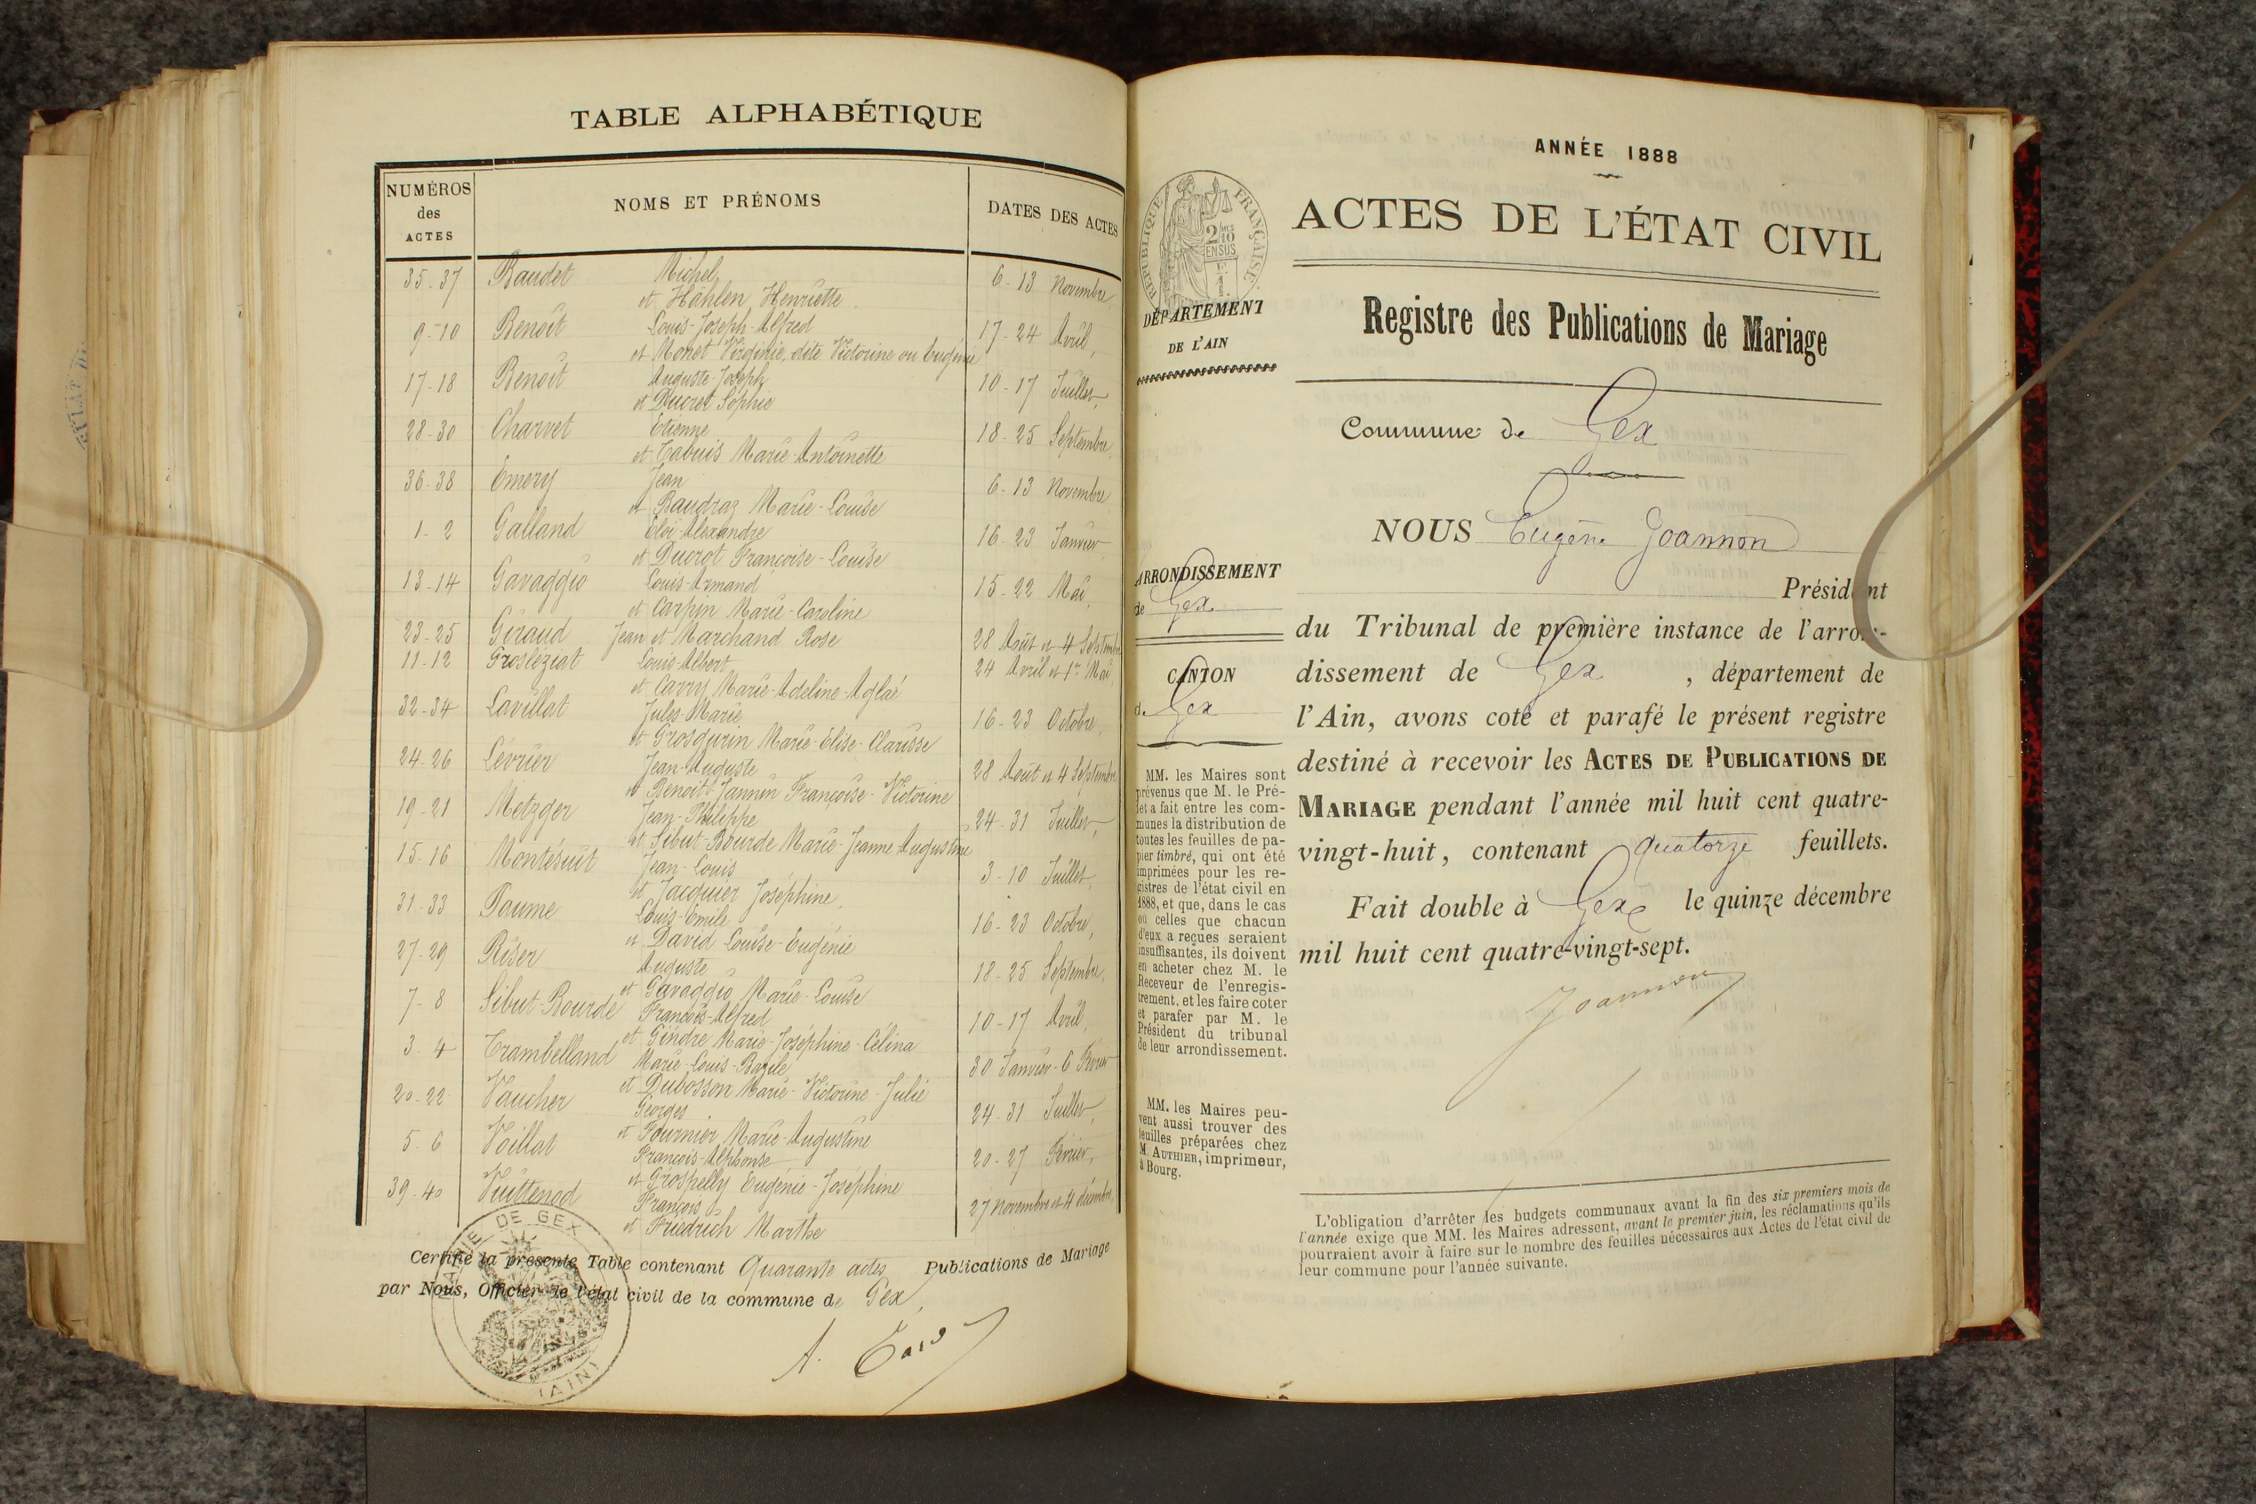 TABLE ALPHABÉTIQUE
NUMÉROS des ACTES
NOMS ET PRÉNOMS
DATES DES ACTES
35-37 Baudet Michel 6-13 Novembre
et Hahlen Henriette
9-10 Benoît Louis-Joseph-Alfred 17-24 Avril,
et Monet Virginie, dite Victorine ou Eugénie
17-18 Benoît Auguste-Joseph 10-17 Juillet,
et Ducret Sophie
28-30 Charvet Etienne 18-25 Septembre,
et Cabuis Marie-Antoinette
36-38 Emery Jean 6-13 Novembre
et Baudraz Marie-Louise
1-2 Galland Eloi-Alexandre 16-23 Janvier
et Ducrot Françoise-Louise
13-14 Gavaggio Louis-Armand 15-22 Mai,
et Carpin Marie-Caroline
23-25 Giraud Jean et Marchand Rose 28 Août et 4 Septembre
11-12 Grosléziat Louis-Albert 24 Avril et 1er Mai,
et Carry Marie-Adeline-Aglaé
32-34 Lavillat Jules-Marie 16-23 Octobre,
et Grosgurin Marie-Elise-Clarisse
24-26 Lévrier Jean-Auguste 28 Août et 4 Septembre
et Benoit-Jannin Françoise-Victorine
19-21 Metzger Jean-Philippe 24-31 Juillet,
et Sibut-Bourde Marie-Jeanne Augustine
15-16 Montésuit Jean-Louis 3-10 Juillet,
et Jacquier Joséphine,
31-33 Paume Louis-Emile 16-23 Octobre,
et David Louise-Eugénie
27-29 Riser Auguste 18-25 Septembre,
et Gavaggio Marie-Louise
7-8 Sibut-Bourde François-Alfred 10-17 Avril,
et Gindre Marie-Joséphine-Célina
3-4 Trambelland Marie-Louis-Bazile 30 Janvier-6 Février
et Dubosson Marie-Victorine-Julie
20-22 Vaucher Georges 24-31 Juillet,
et Fournier Marie-Augustine
5-6 Voillat François-Alphonse 20-27 Février,
et Grospelly Eugénie-Joséphine
39-40 Vuittenod François 27 Novembre et 4 décembre,
et Friedrich Marthe
Certifié la présente Table contenant Quarante actes Publications de Mariage
par Nous, Officier de l'état civil de la commune de Gex,
MAIRIE DE GEX
(AIN)
ANNÉE 1888
RÉPUBLIQUE FRANÇAISE
2/10 EN SUS
ACTES DE L'ÉTAT CIVIL
DÉPARTEMENT
DE L'AIN
Registre des Publications de Mariage
Commune de Gex
NOUS Eugène Joannon
Président
du Tribunal de première instance de l'arron-
dissement de Gex, département de
l'Ain, avons coté et parafé le présent registre
destiné à recevoir les ACTES DE PUBLICATIONS DE
MARIAGE pendant l'année mil huit cent quatre-
vingt-huit, contenant quatorze feuillets.
Fait double à Gex le quinze décembre
mil huit cent quatre-vingt-sept.
Joannon
ARRONDISSEMENT
de Gex
CANTON
de Gex
MM. les Maires sont
prévenus que M. le Pré-
fet a fait entre les com-
munes la distribution de
toutes les feuilles de pa-
pier timbré, qui ont été
imprimées pour les re-
gistres de l'état civil en
1888, et que, dans le cas
où celles que chacun
d'eux a reçues seraient
insuffisantes, ils doivent
en acheter chez M. le
Receveur de l'enregis-
trement, et les faire coter
et parafer par M. le
Président du tribunal
de leur arrondissement.
MM. les Maires peu-
vent aussi trouver des
feuilles préparées chez
M. AUTHIER, imprimeur,
à Bourg.
L'obligation d'arrêter les budgets communaux avant la fin des six premiers mois de
l'année exige que MM. les Maires adressent, avant le premier juin, les réclamations qu'ils
pourraient avoir à faire sur le nombre des feuilles nécessaires aux Actes de l'état civil de
leur commune pour l'année suivante.